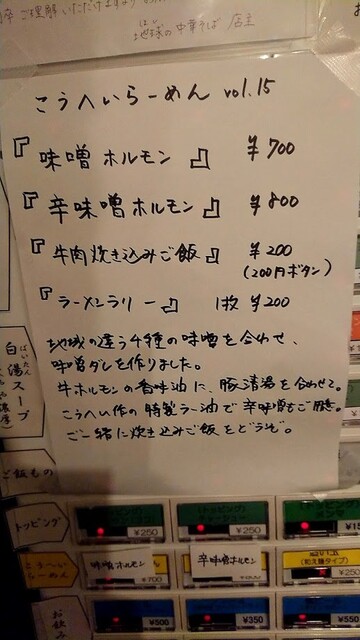 ご理解いただけますよう
地球の中華そば 店主
こうへいらーめん vol.15
『味噌ホルモン』 ¥700
『辛味噌ホルモン』 ¥800
『牛肉炊き込みご飯』 ¥200
(200円ボタン)
『ラーメンラリー』 1枚 ¥200
地域の違う4種の味噌を合わせ、
味噌ダレを作りました。
牛ホルモンの香味油に、豚清湯を合わせて。
こうへい作の特製ラー油で辛味噌もご用意。
ご一緒に炊き込みご飯をどうぞ。
白湯スープ
ぱいたん
ご飯もの
トッピング
¥250
¥250
こうへいらーめん
味噌ホルモン
辛味噌ホルモン
(和え麺タイプ)
¥700
¥250
お飲み
¥500
¥350
¥550